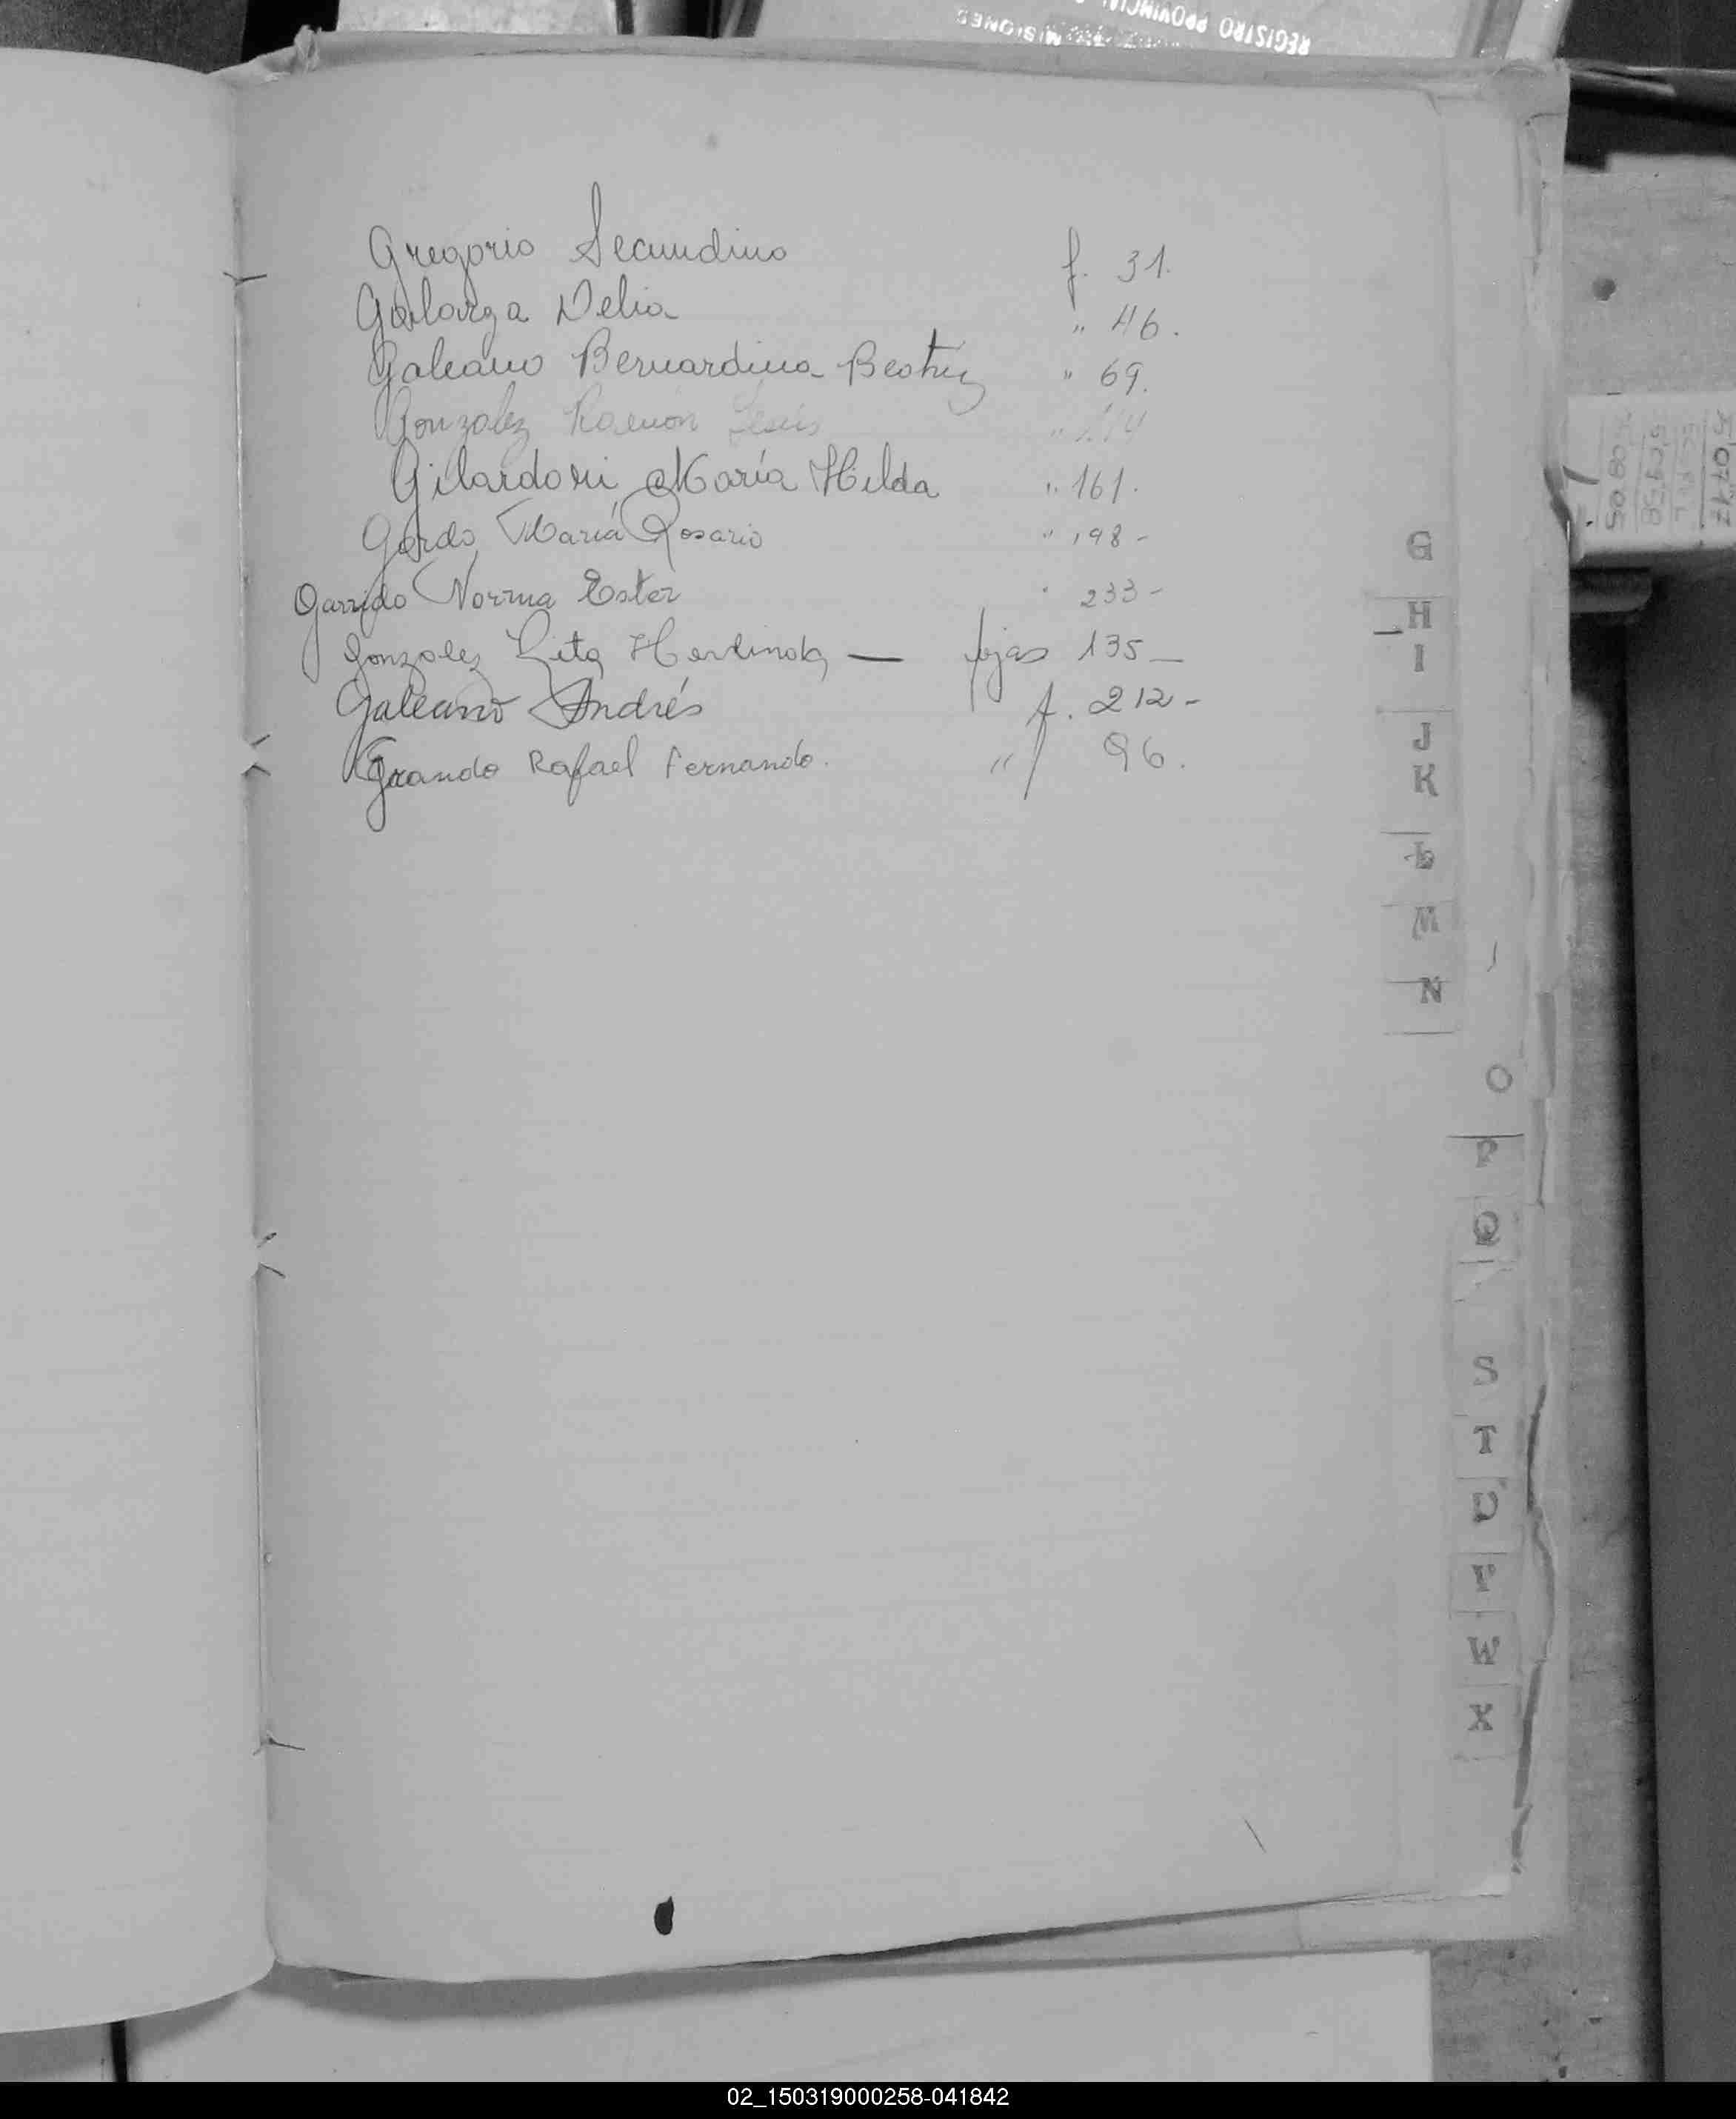 REGISTRO PROVINCIAL
MISIONES
Gregorio Secundino f. 31.
Galarza Delia " 46.
Galeano Bernardina Beatriz " 69.
Gonzalez Ramón Jesús " 114
Gilardoni María Hilda " 161.
Gardo María Rosario " 198-
Garrido Norma Ester " 233-
Gonzalez Lita — fojas 135—
Galeano Andrés f. 212-
Grando Rafael Fernando. " 96.
G
H
I
J
K
L
M
N
O
P
Q
S
T
U
W
X
02_150319000258-041842